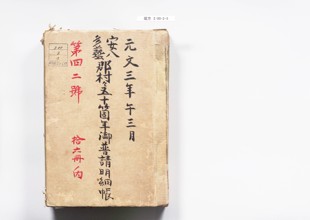 元文三年午三月
安八
多藝
郡村々五十箇年御普請明細帳
第四二號
拾六冊ノ内